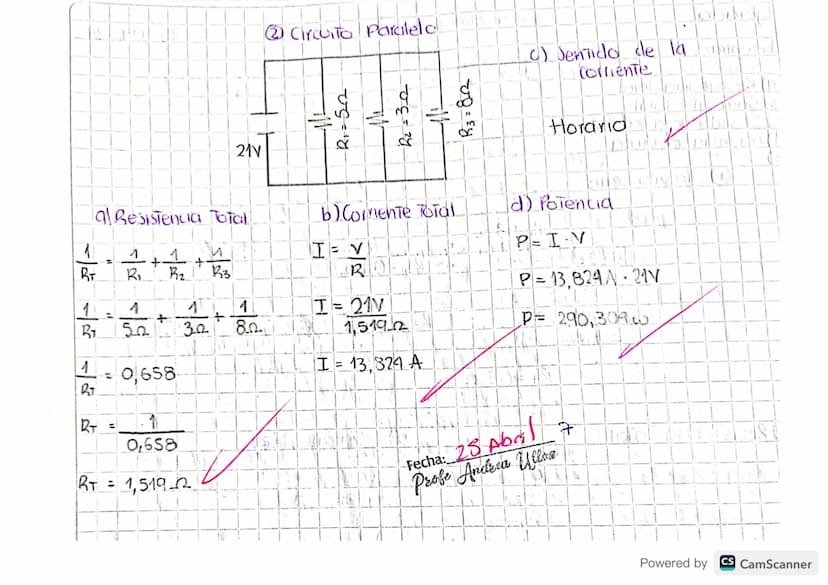 ② Circuito Paralelo
21V
R₁ = 5Ω
R₂ = 3Ω
R₃ = 8Ω
c) Sentido de la
corriente
Horario
a) Resistencia Total
1/RT = 1/R₁ + 1/R₂ + 1/R₃
1/RT = 1/5Ω + 1/3Ω + 1/8Ω
1/RT = 0,658
RT = 1/0,658
RT = 1,519Ω
b) Corriente Total
I = V/R
I = 21V/1,519Ω
I = 13,824 A
d) Potencia
P = I · V
P = 13,824A · 21V
P = 290,304w
Fecha: 25 Abril 7
Profe Andrea Ulloa
Powered by CS CamScanner